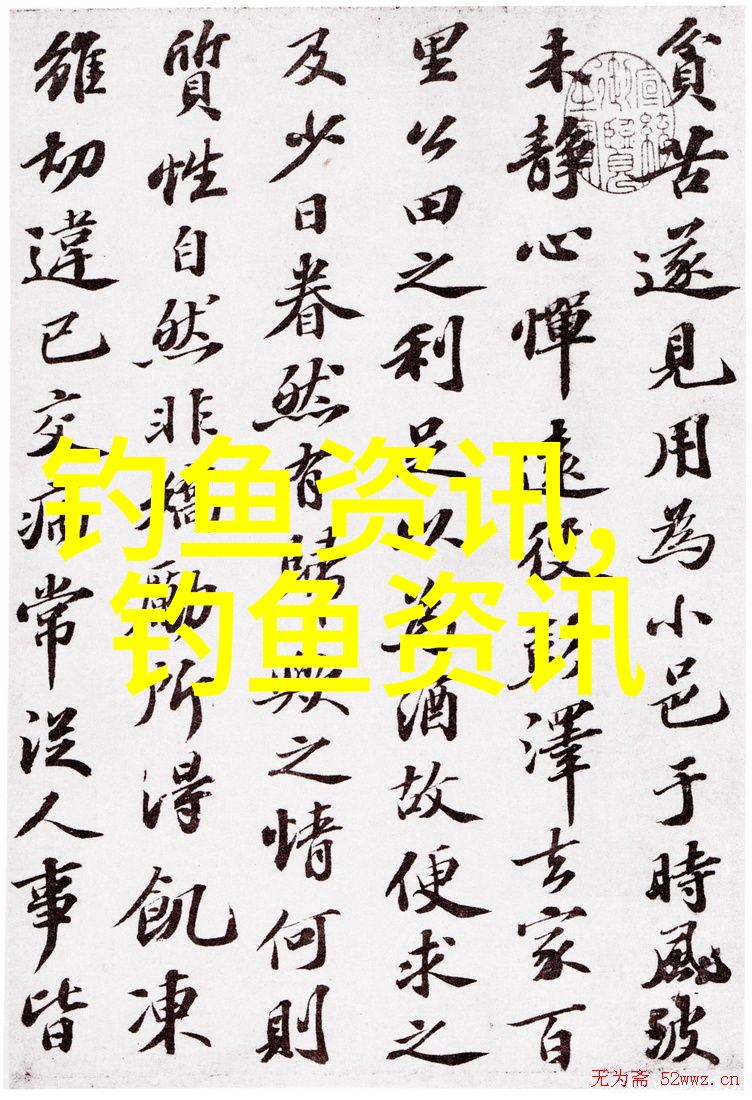 貧苦遂見用為小邑于時風波
未靜心憚遠役彭澤去家百
里公田之利足以為酒故便求之
及少日眷然有歸歟之情何則
質性自然非矯勵所得飢凍
雖切違己交病常從人事皆
钓鱼资讯,
钓鱼资讯
无为斋 52wwz.cn